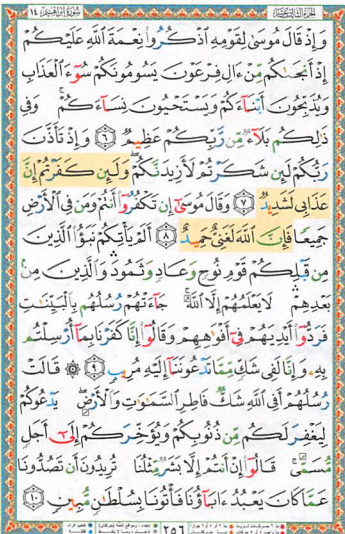 الجزء الثالث عشر سورة إبراهيم ١٤
وَإِذْ قَالَ مُوسَىٰ لِقَوْمِهِ ٱذْكُرُوا۟ نِعْمَةَ ٱللَّهِ عَلَيْكُمْ
إِذْ أَنجَىٰكُم مِّنْ ءَالِ فِرْعَوْنَ يَسُومُونَكُمْ سُوٓءَ ٱلْعَذَابِ
وَيُذَبِّحُونَ أَبْنَآءَكُمْ وَيَسْتَحْيُونَ نِسَآءَكُمْ ۚ وَفِى
ذَٰلِكُم بَلَآءٌ مِّن رَّبِّكُمْ عَظِيمٌ ٦ وَإِذْ تَأَذَّنَ
رَبُّكُمْ لَئِن شَكَرْتُمْ لَأَزِيدَنَّكُمْ ۖ وَلَئِن كَفَرْتُمْ إِنَّ
عَذَابِى لَشَدِيدٌ ٧ وَقَالَ مُوسَىٰٓ إِن تَكْفُرُوٓا۟ أَنتُمْ وَمَن فِى ٱلْأَرْضِ
جَمِيعًا فَإِنَّ ٱللَّهَ لَغَنِىٌّ حَمِيدٌ ٨ أَلَمْ يَأْتِكُمْ نَبَؤُا۟ ٱلَّذِينَ
مِن قَبْلِكُمْ قَوْمِ نُوحٍ وَعَادٍ وَثَمُودَ ۛ وَٱلَّذِينَ مِنۢ
بَعْدِهِمْ ۛ لَا يَعْلَمُهُمْ إِلَّا ٱللَّهُ ۚ جَآءَتْهُمْ رُسُلُهُم بِٱلْبَيِّنَٰتِ
فَرَدُّوٓا۟ أَيْدِيَهُمْ فِىٓ أَفْوَٰهِهِمْ وَقَالُوٓا۟ إِنَّا كَفَرْنَا بِمَآ أُرْسِلْتُم
بِهِۦ وَإِنَّا لَفِى شَكٍّ مِّمَّا تَدْعُونَنَآ إِلَيْهِ مُرِيبٍ ٩ ۞ قَالَتْ
رُسُلُهُمْ أَفِى ٱللَّهِ شَكٌّ فَاطِرِ ٱلسَّمَٰوَٰتِ وَٱلْأَرْضِ ۖ يَدْعُوكُمْ
لِيَغْفِرَ لَكُم مِّن ذُنُوبِكُمْ وَيُؤَخِّرَكُمْ إِلَىٰٓ أَجَلٍ
مُّسَمًّى ۚ قَالُوٓا۟ إِنْ أَنتُمْ إِلَّا بَشَرٌ مِّثْلُنَا تُرِيدُونَ أَن تَصُدُّونَا
عَمَّا كَانَ يَعْبُدُ ءَابَآؤُنَا فَأْتُونَا بِسُلْطَٰنٍ مُّبِينٍ ١٠
٢٥٦